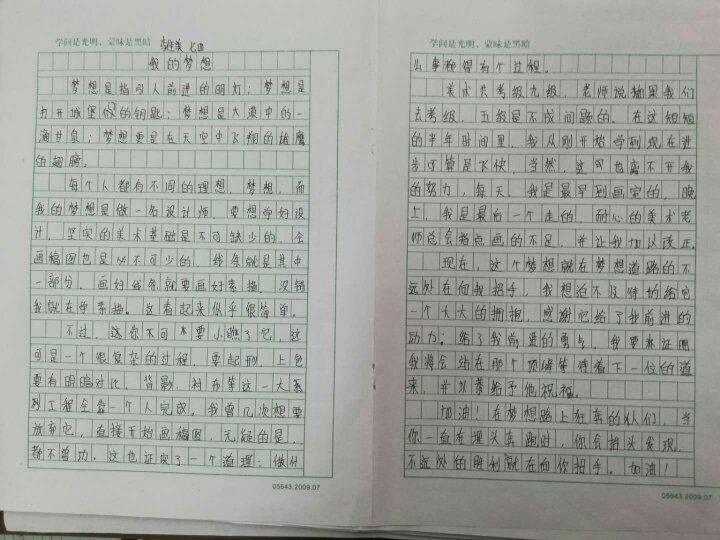 学问是光明，蒙昧是黑暗
我的梦想
梦想是指向人前进的明灯；梦想是
打开城堡的钥匙；梦想是大漠中的一
滴甘泉；梦想更是在天空中飞翔的雄鹰
的翅膀。
每个人都有不同的理想，梦想，而
我的梦想是做一名设计师，要想学好设
计，坚实的美术基础是不可缺少的，会
画稿图也是必不可少的，线条就是其中
一部分，画好线条就要画好素描，没错
我就在学素描。这看起来似乎很简单。
不过，这你不可要小瞧了它，这
可是一个很复杂的过程，要起形，上色
要有明暗对比，背影，衬布等这一大系
列工程全靠一个人完成。我曾几次想要
放弃它，直接开始画稿图，无疑的是，
都不曾功。这也证实了一个道理：做什
05643.2009.07
学问是光明，蒙昧是黑暗
么事都得有个过程。
美术共考级九级，老师说如果我们
去考级，五级是不成问题的。在这短短
的半年时间里，我从刚开始学到现在进
步可算是飞快，当然，这也离不开我
的努力，每天，我是最早到画室的，晚
上，我是最后一个走的，耐心的美术老
师总会指点画的不足，并让我加以改正。
现在，这个梦想就在梦想道路的不
远处在向我招手，我想迫不及待的给它
一个大大的拥抱，感谢它给了我前进的
动力；给了我前进的勇气，我要来证明
我将会站在那个顶峰等待着下一位的道
来，并以着给予他祝福。
加油！在梦想路上狂奔的人们，当
你一直在埋头奔跑时，你会抬头发现，
不远处的胜利就在向你招手。加油！
05643.2009.07